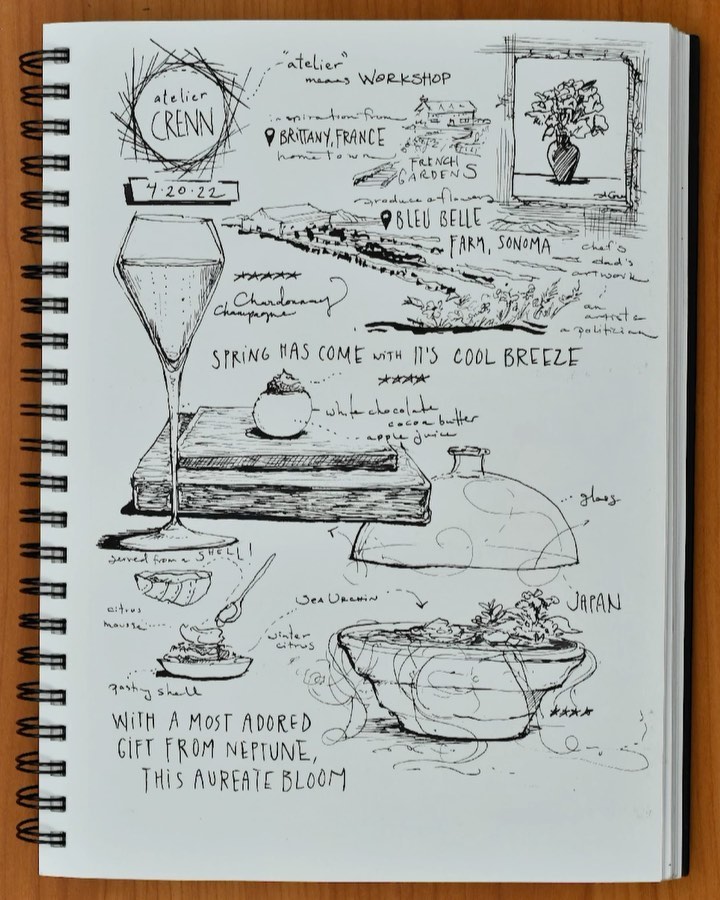 atelier
CRENN
4.20.22
"atelier"
means WORKSHOP
inspiration from
BRITTANY, FRANCE
home town
FRENCH
GARDENS
produce & flowers
BLEU BELLE
FARM, SONOMA
chef's
dad's
artwork
an
artist &
a politician
Chardonnay
Champagne
SPRING HAS COME WITH IT'S COOL BREEZE
white chocolate
cocoa butter
apple juice
glass
served from a SHELL!
citrus
mousse
pastry shell
winter
citrus
SEA URCHIN
JAPAN
WITH A MOST ADORED
GIFT FROM NEPTUNE,
THIS AUREATE BLOOM